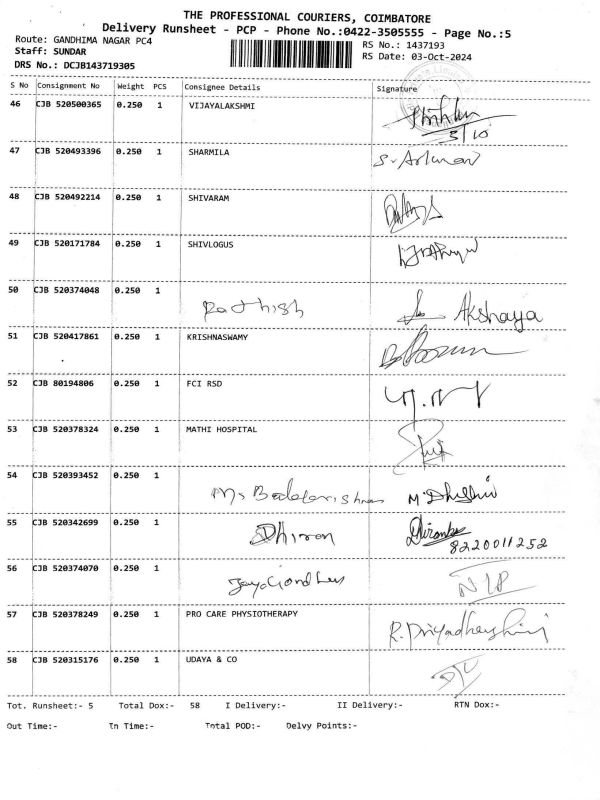 THE PROFESSIONAL COURIERS, COIMBATORE
Delivery Runsheet - PCP - Phone No.:0422-3505555 - Page No.:5
Route: GANDHIMA NAGAR PC4 RS No.: 1437193
Staff: SUNDAR RS Date: 03-Oct-2024
DRS No.: DCJB143719305
S No Consignment No Weight PCS Consignee Details Signature
46 CJB 520500365 0.250 1 VIJAYALAKSHMI
3/10
47 CJB 520493396 0.250 1 SHARMILA
48 CJB 520492214 0.250 1 SHIVARAM
49 CJB 520171784 0.250 1 SHIVLOGUS
50 CJB 520374048 0.250 1
Rathish Akshaya
51 CJB 520417861 0.250 1 KRISHNASWAMY
52 CJB 80194806 0.250 1 FCI RSD
53 CJB 520378324 0.250 1 MATHI HOSPITAL
54 CJB 520393452 0.250 1
55 CJB 520342699 0.250 1
8220011252
56 CJB 520374070 0.250 1
57 CJB 520378249 0.250 1 PRO CARE PHYSIOTHERAPY
R. Priyadharshini
58 CJB 520315176 0.250 1 UDAYA & CO
Tot. Runsheet:- 5 Total Dox:- 58 I Delivery:- II Delivery:- RTN Dox:-
Out Time:- In Time:- Total POD:- Delvy Points:-